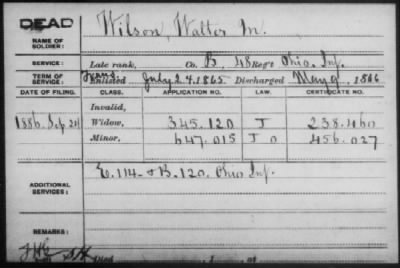 DEAD
NAME OF SOLDIER: Wilson, Walter M.
SERVICE: Late rank, Co. B, 48 Reg't Ohio Inf.
TERM OF SERVICE: Trans Enlisted July 24, 1865 Discharged May 9, 1866
DATE OF FILING. CLASS. APPLICATION NO. LAW. CERTIFICATE NO.
Invalid,
1886, Sep 20 Widow, 345.120 J 238.460
Minor, 647.015 J O 456.027
ADDITIONAL SERVICES: E. 114 - & B. 120, Ohio Inf.
REMARKS:
Died , 1 , at